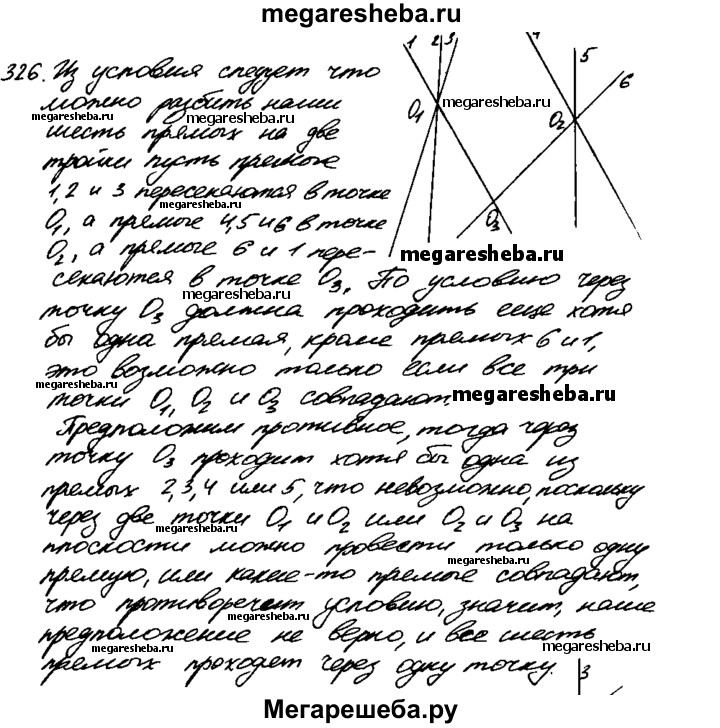 megaresheba.ru
326. Из условия следует что
можно разбить наши
шесть прямых на две
тройки пусть прямые
1, 2 и 3 пересекаются в точке
O₁, а прямые 4, 5 и 6 в точке
O₂, а прямые 6 и 1 пере-
секаются в точке O₃. По условию через
точку O₃ должна проходить еще хотя
бы одна прямая, кроме прямых 6 и 1,
это возможно только если все три
точки O₁, O₂ и O₃ совпадают.
Предположим противное, тогда через
точку O₃ проходит хотя бы одна из
прямых 2, 3, 4 или 5, что невозможно, поскольку
через две точки O₁ и O₂ или O₂ и O₃ на
плоскости можно провести только одну
прямую, или какие-то прямые совпадают,
что противоречит условию, значит, наше
предположение не верно, и все шесть
прямых проходят через одну точку.
1 2 3
5
6
O₁
O₂
O₃
3
megaresheba.ru
megaresheba.ru
megaresheba.ru
megaresheba.ru
megaresheba.ru
megaresheba.ru
megaresheba.ru
megaresheba.ru
megaresheba.ru
megaresheba.ru
megaresheba.ru
megaresheba.ru
megaresheba.ru
megaresheba.ru
Мегарешеба.ру